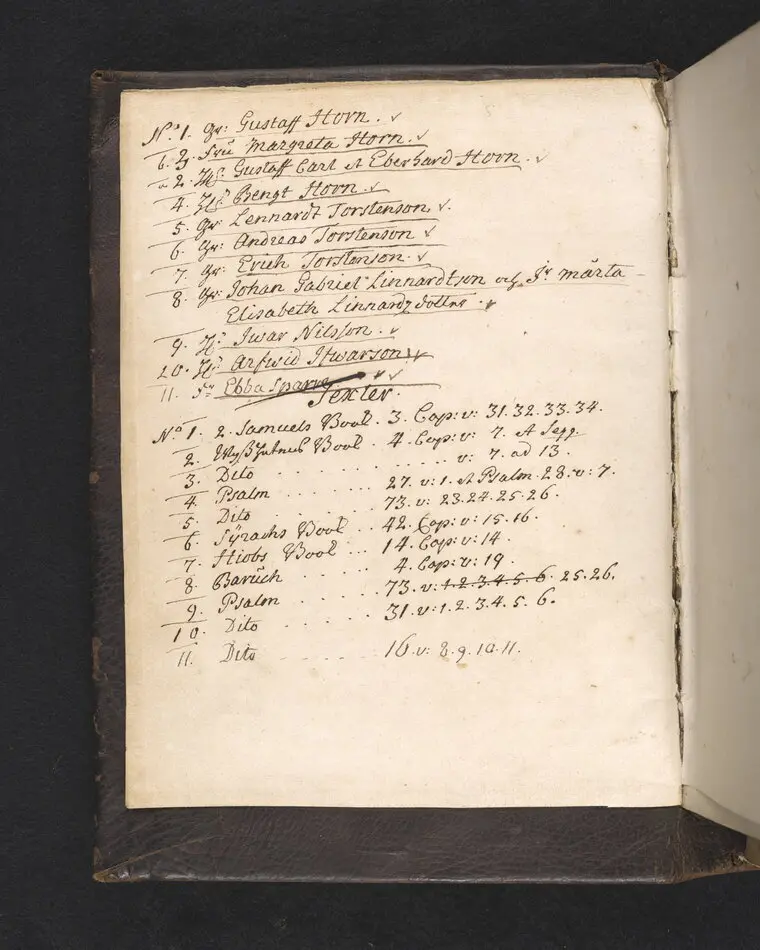 No 1. Gr: Gustaff Horn.
6. 2. Frü Margreta Horn.
2. Hr Gustaff Carl et Eberhard Horn.
4. Hr Bengt Horn.
5. Gr: Lennardt Torstenson.
6. Gr: Andreas Torstenson
7. Gr: Erich Torstenson.
8. Gr: Johan Gabriel Linnardtson och Jr Märta
Elisabeth Linnardzdotter.
9. Hr Iwar Nilsson.
10. Hr Arfwid Ifwarson
11. Fr Ebba Sparre
Texter.
No 1. 2. Samuels Book. 3. Cap: v: 31. 32. 33. 34.
2. Book. 4. Cap: v: 7. et seqq.
3. Dito . . . . . . v: 7. ad 13.
4. Psalm . . . . . 27. v: 1. et Psalm. 28. v: 7.
5. Dito . . . . . 73. v: 23. 24. 25. 26.
6. Sÿrachs Book .. 42. Cap: v: 15. 16.
7. Hiobs Book ... 14. Cap: v: 14.
8. Barüch . . . . . 4. Cap: v: 19.
9. Psalm . . . . . 73. v: 1. 2. 3. 4. 5. 6. 25. 26.
10. Dito . . . . . 31. v: 1. 2. 3. 4. 5. 6.
11. Dito . . . . . 16. v: 8. 9. 10. 11.